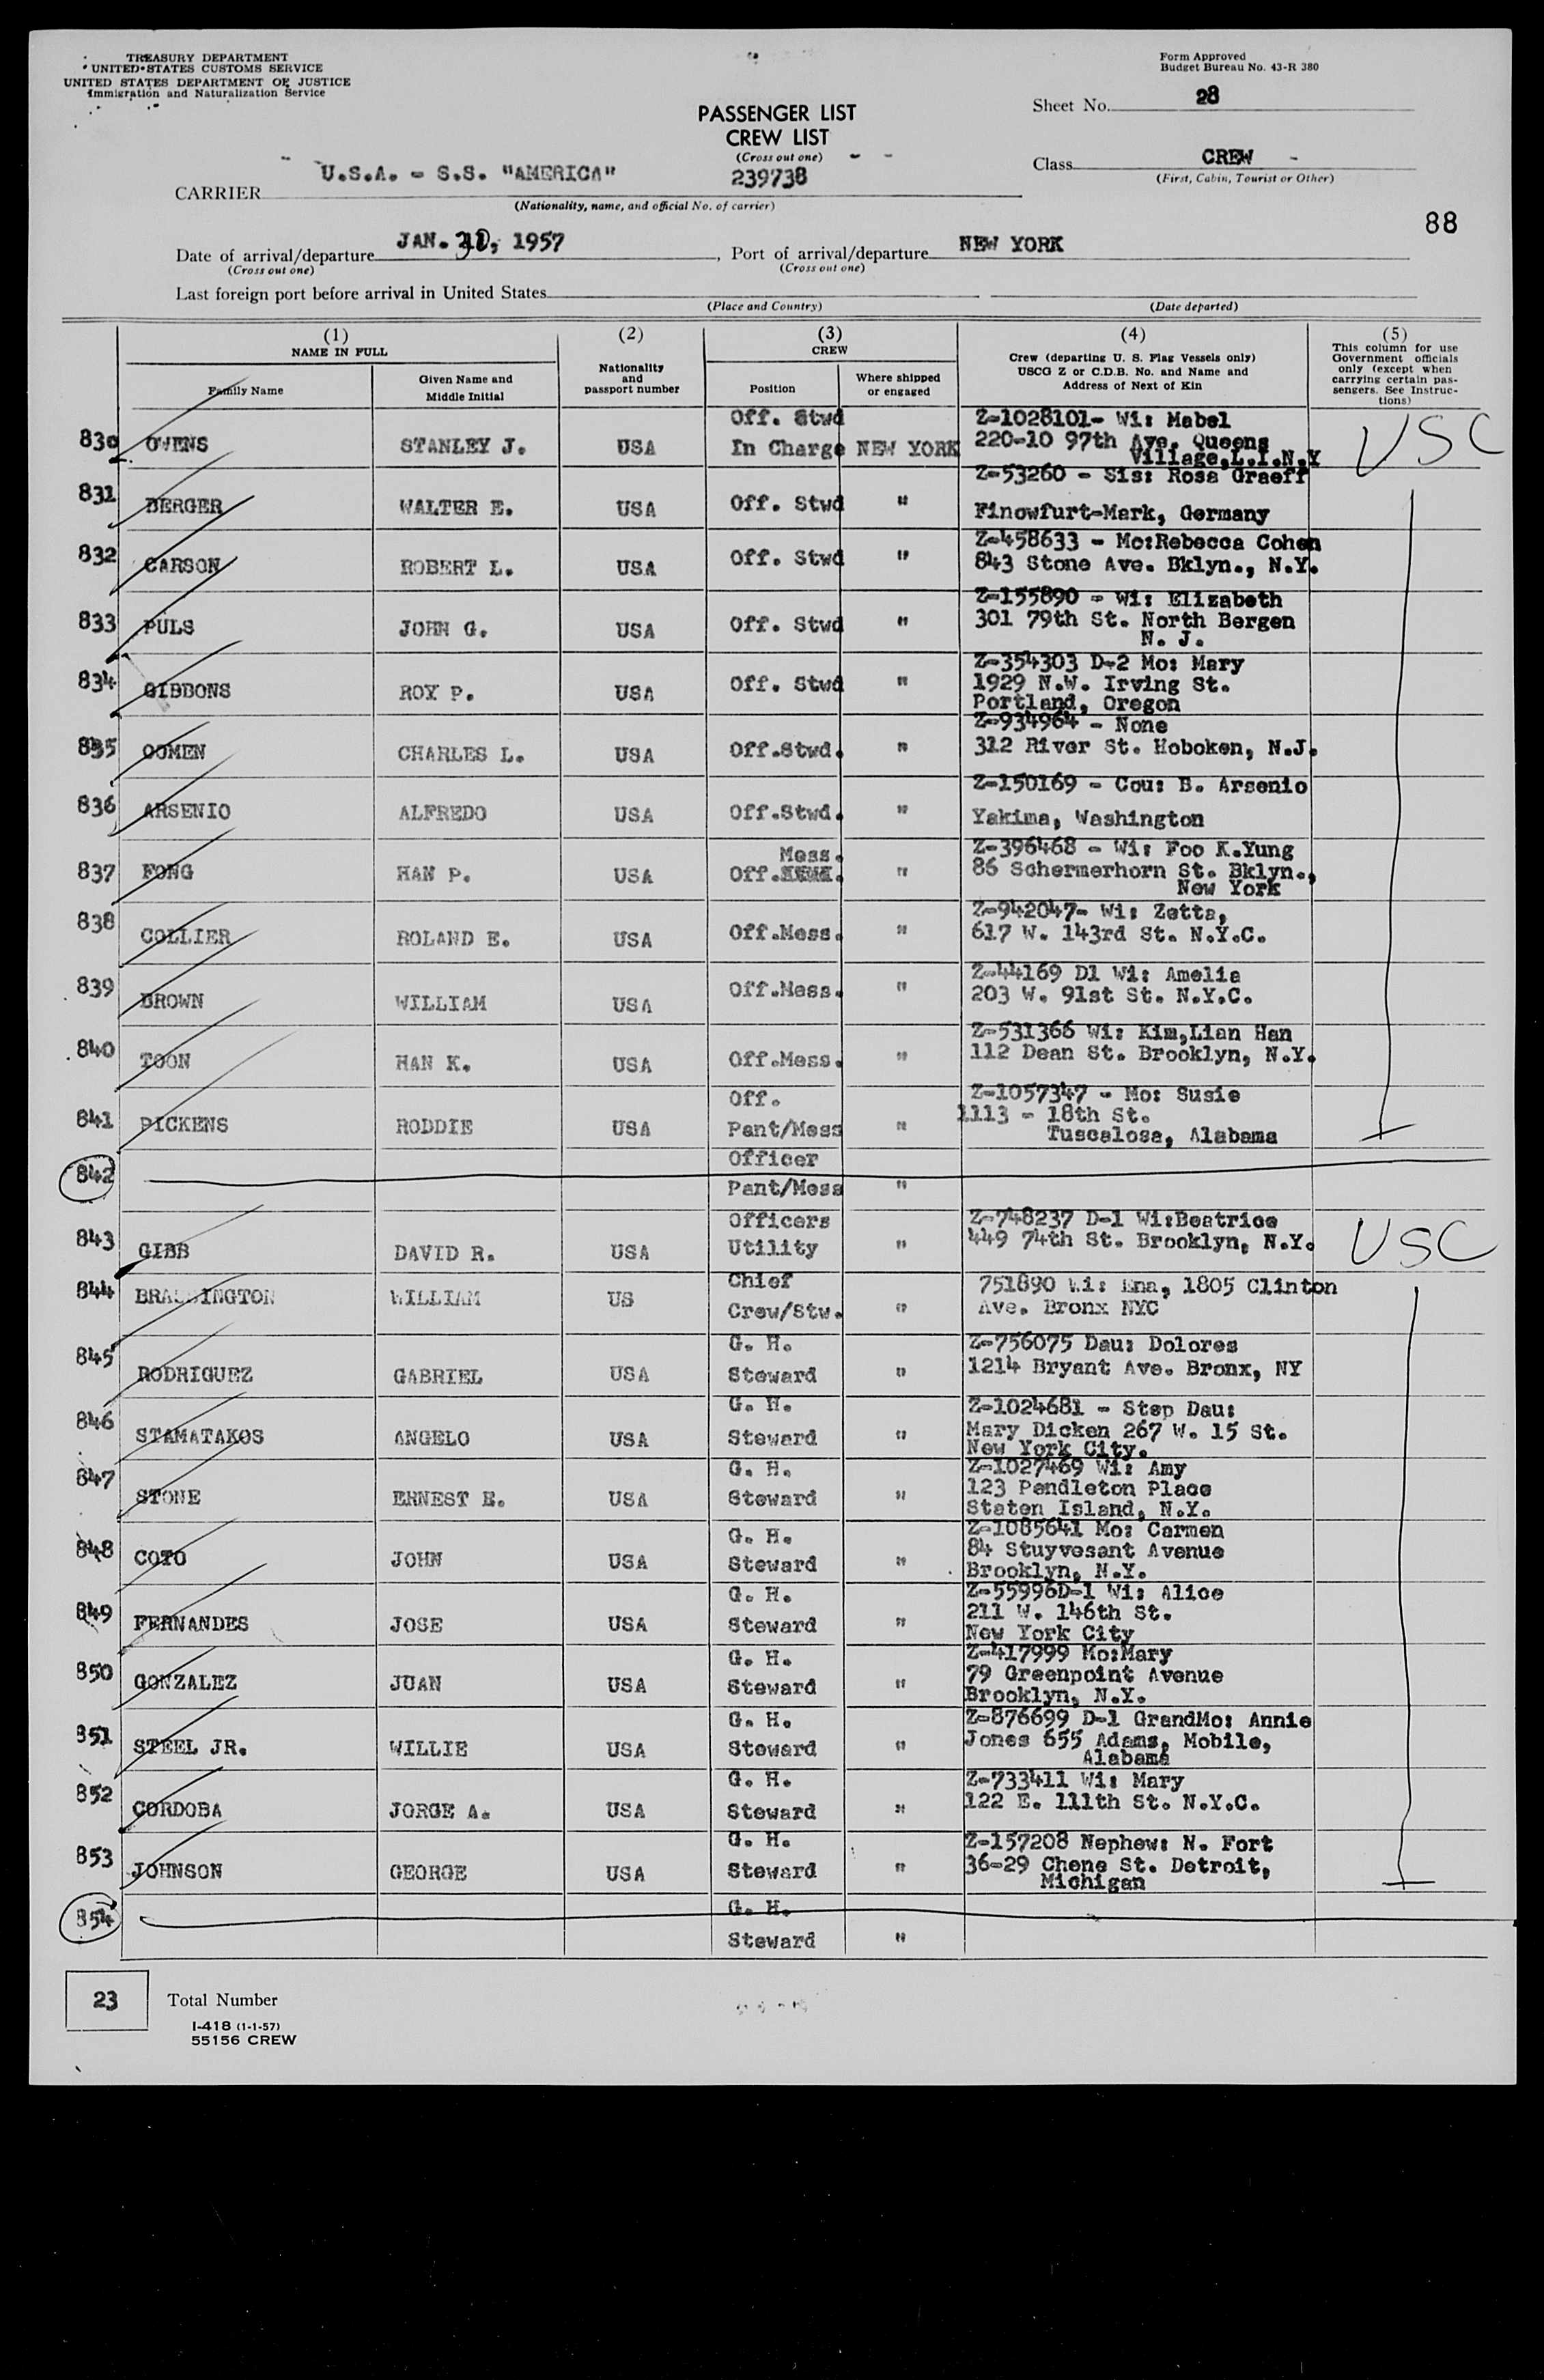 TREASURY DEPARTMENT
UNITED STATES CUSTOMS SERVICE
UNITED STATES DEPARTMENT OF JUSTICE
Immigration and Naturalization Service
Form Approved
Budget Bureau No. 43-R 380
Sheet No. 28
PASSENGER LIST
CREW LIST
(Cross out one)
Class CREW
(First, Cabin, Tourist or Other)
CARRIER U.S.A. - S.S. "AMERICA" 239738
(Nationality, name, and official No. of carrier)
88
Date of arrival/departure JAN. , 1957, Port of arrival/departure NEW YORK
(Cross out one) (Cross out one)
Last foreign port before arrival in United States
(Place and Country) (Date departed)
(1) (2) (3) (4) (5)
NAME IN FULL
Family Name
Given Name and Middle Initial
Nationality and passport number
CREW
Position
Where shipped or engaged
Crew (departing U. S. Flag Vessels only)
USCG Z or C.D.B. No. and Name and
Address of Next of Kin
This column for use
Government officials
only (except when
carrying certain pas-
sengers. See Instruc-
tions)
Off. Stwd Z-1028101- Wi: Mabel
830 OWENS STANLEY J. USA In Charge NEW YORK 220-10 97th Ave. Queens USC
Village,L.I.N.Y
Z-53260 - Sis: Rosa Graeff
831 BERGER WALTER E. USA Off. Stwd "
Finowfurt-Mark, Germany
Z-458633 - Mo:Rebecca Cohen
832 CARSON ROBERT L. USA Off. Stwd " 843 Stone Ave. Bklyn., N.Y.
Z-155890 - Wi: Elizabeth
833 PULS JOHN G. USA Off. Stwd " 301 79th St. North Bergen
N. J.
Z-354303 D-2 Mo: Mary
834 GIBBONS ROY P. USA Off. Stwd " 1929 N.W. Irving St.
Portland, Oregon
Z-934964 - None
835 OOMEN CHARLES L. USA Off.Stwd. " 312 River St. Hoboken, N.J.
Z-150169 - Cou: B. Arsenio
836 ARSENIO ALFREDO USA Off.Stwd. "
Yakima, Washington
Mess. Z-396468 - Wi: Foo K.Yung
837 FONG HAN P. USA Off. " 86 Schermerhorn St. Bklyn.,
New York
Z-942047- Wi: Zetta,
838 COLLIER ROLAND E. USA Off.Mess. " 617 W. 143rd St. N.Y.C.
Z-44169 D1 Wi: Amelia
839 BROWN WILLIAM USA Off.Mess. " 203 W. 91st St. N.Y.C.
Z-531366 Wi: Kim,Lian Han
840 TOON HAN K. USA Off.Mess. " 112 Dean St. Brooklyn, N.Y.
Off. Z-1057347 - Mo: Susie
841 PICKENS RODDIE USA Pant/Mess " 1113 - 18th St.
Tuscalosa, Alabama
842 Officer
Pant/Mess "
Officers Z-748237 D-1 Wi:Beatrice
843 GIBB DAVID R. USA Utility " 449 74th St. Brooklyn, N.Y. USC
Chief 751890 Wi: Ena, 1805 Clinton
844 WILLIAM US Crew/Stw. " Ave. Bronx NYC
G. H. Z-756075 Dau: Dolores
845 RODRIGUEZ GABRIEL USA Steward " 1214 Bryant Ave. Bronx, NY
G. H. Z-1024681 - Step Dau:
846 STAMATAKOS ANGELO USA Steward " Mary Dicken 267 W. 15 St.
New York City.
G. H. Z-1027469 Wi: Amy
847 STONE ERNEST E. USA Steward " 123 Pendleton Place
Staten Island, N.Y.
G. H. Z-1085641 Mo: Carmen
848 COTO JOHN USA Steward " 84 Stuyvesant Avenue
Brooklyn, N.Y.
G. H. Z-55996D-1 Wi: Alice
849 FERNANDES JOSE USA Steward " 211 W. 146th St.
New York City
G. H. Z-417999 Mo:Mary
850 GONZALEZ JUAN USA Steward " 79 Greenpoint Avenue
Brooklyn, N.Y.
G. H. Z-876699 D-1 GrandMo: Annie
851 STEEL JR. WILLIE USA Steward " Jones 655 Adams, Mobile,
Alabama
G. H. Z-733411 Wi: Mary
852 CORDOBA JORGE A. USA Steward " 122 E. 111th St. N.Y.C.
G. H. Z-157208 Nephew: N. Fort
853 JOHNSON GEORGE USA Steward " 36-29 Chene St. Detroit,
Michigan
854 G. H.
Steward "
23 Total Number
I-418 (1-1-57)
55156 CREW